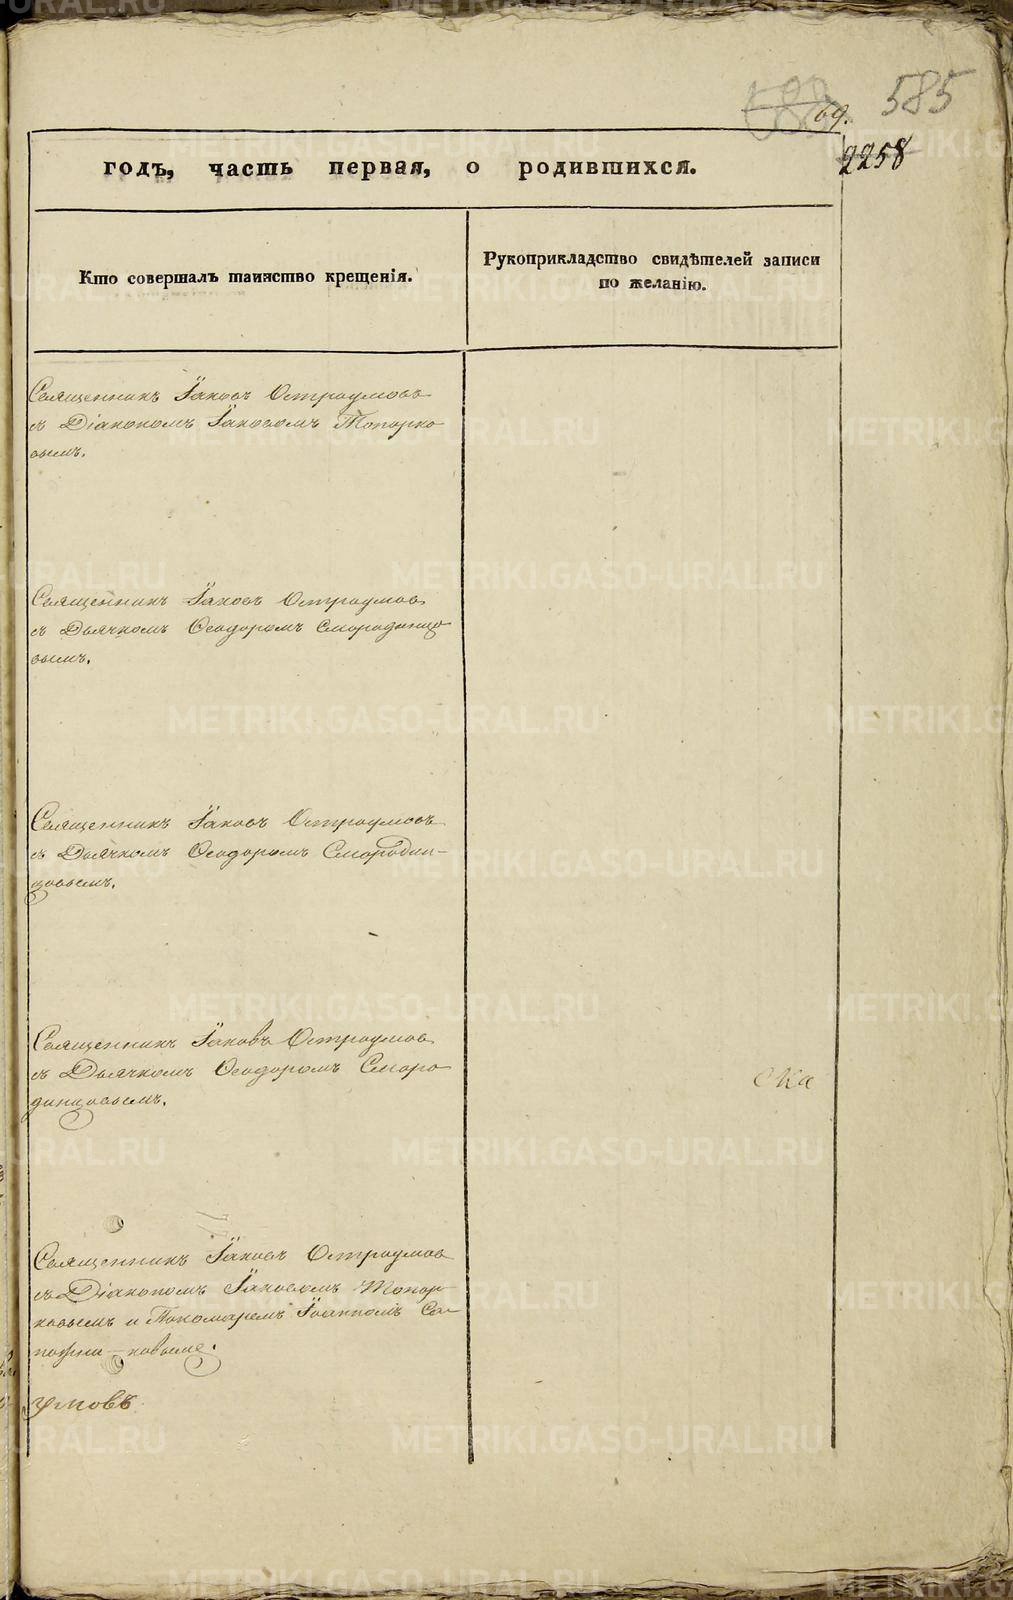 585
69.
2258
годъ, часть первая, о родившихся.
Кто совершалъ таинство крещенія.
Рукоприкладство свидѣтелей записи
по желанію.
Священникъ Іаковъ Остроумовъ
съ Діакономъ Іаковомъ Топорко
вымъ.
Священникъ Іаковъ Остроумовъ
съ Дьячкомъ Ѳеодоромъ Смородинцо
вымъ.
Священникъ Іаковъ Остроумовъ
съ Дьячкомъ Ѳеодоромъ Смородин-
цовымъ.
Священникъ Іаковъ Остроумовъ
съ Дьячкомъ Ѳеодоромъ Сморо
динцовымъ.
ска
Священникъ Іаковъ Остроумовъ
съ Діакономъ Іаковомъ Топор
ковымъ и Пономаремъ Іоанномъ Са-
пожни-ковымъ.
умовъ
METRIKI.GASO-URAL.RU